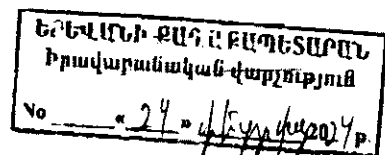 ԵՐԵՎԱՆԻ ՔԱՂԱՔԱՊԵՏԱՐԱՆ
Իրավաբանական վարչություն
No « 24 » 2024 թ.